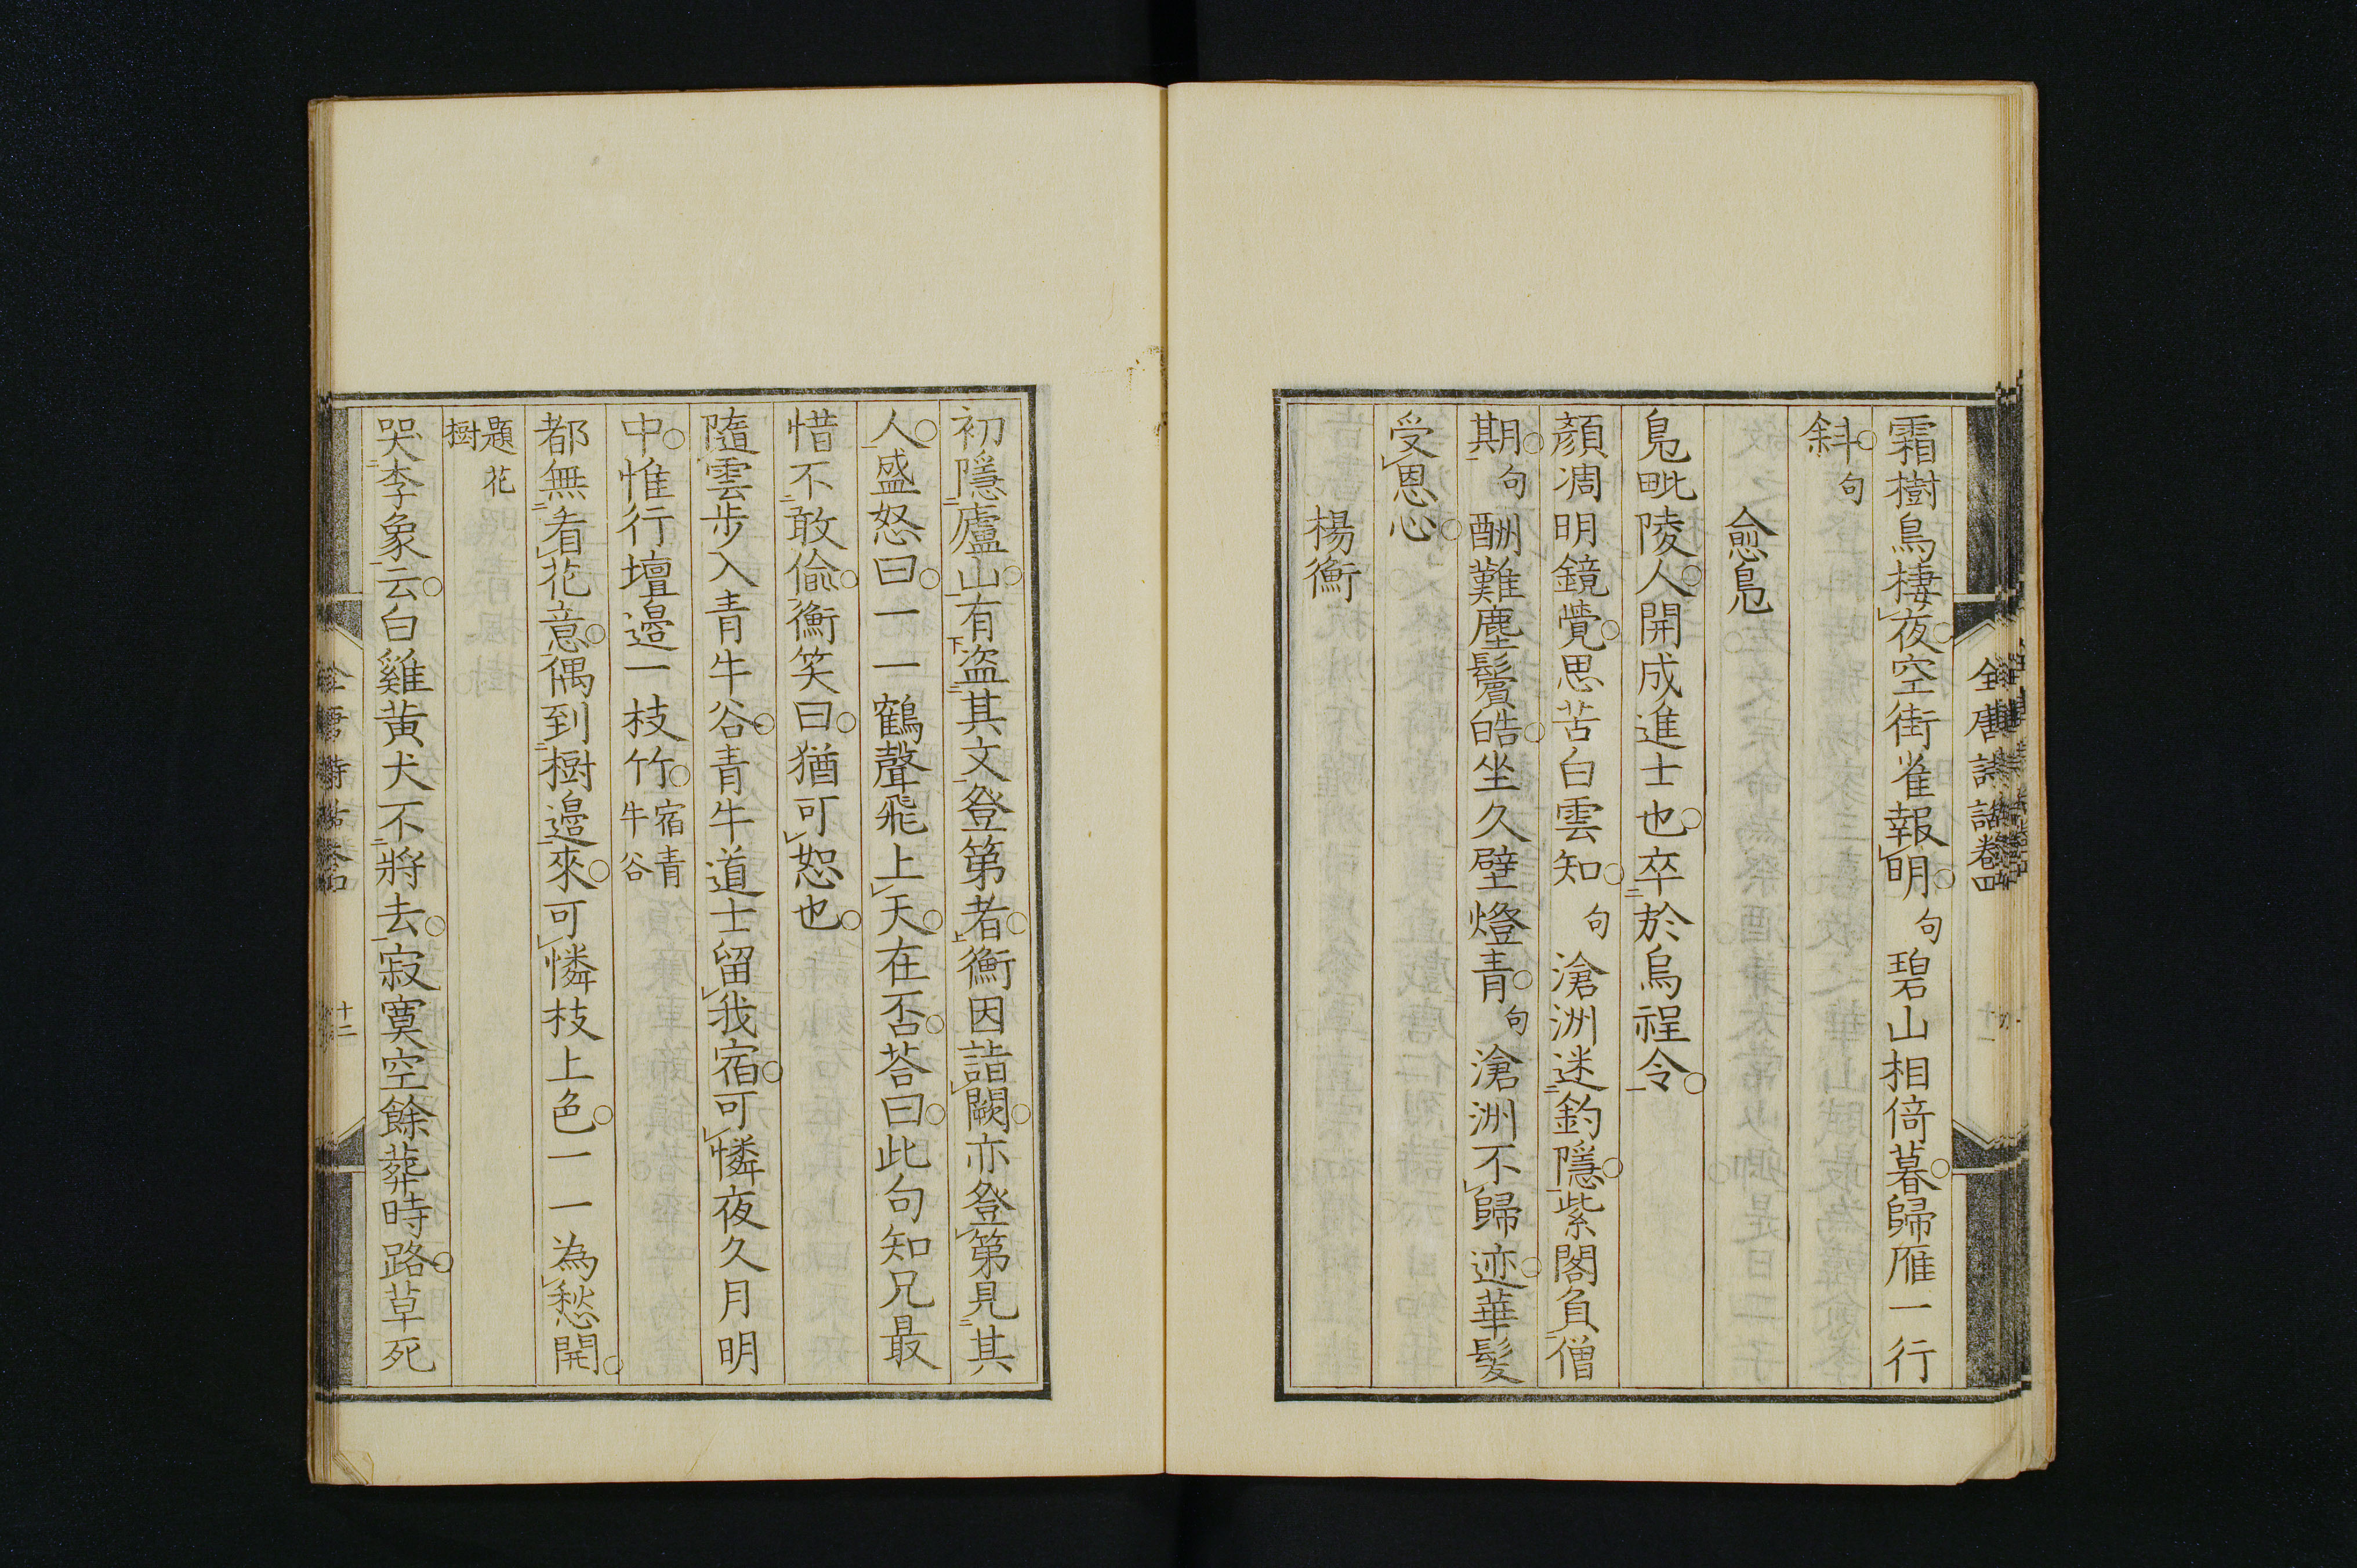 霜樹鳥棲夜空街雀報明句碧山相倚暮歸雁一行
斜句
俞鳧
鳧毗陵人開成進士也卒於烏程令
顏凋明鏡覺思苦白雲知句滄洲迷釣隱紫閣負僧
期句酬難塵鬢皓坐久壁燈青句滄洲不歸迹華髮
受恩心
楊衡
全唐詩話卷四
十一
初隱廬山有盜其文登第者衡因詣闕亦登第見其
人盛怒曰一一鶴聲飛上天在否荅曰此句知兄最
惜不敢偷衡笑曰猶可恕也
隨雲步入青牛谷青牛道士留我宿可憐夜久月明
中惟行壇邉一枝竹宿青牛谷
都無看花意偶到樹邉來可憐枝上色一一為愁開
題花樹
哭李象云白雞黃犬不將去寂寞空餘葬時路草死
十二